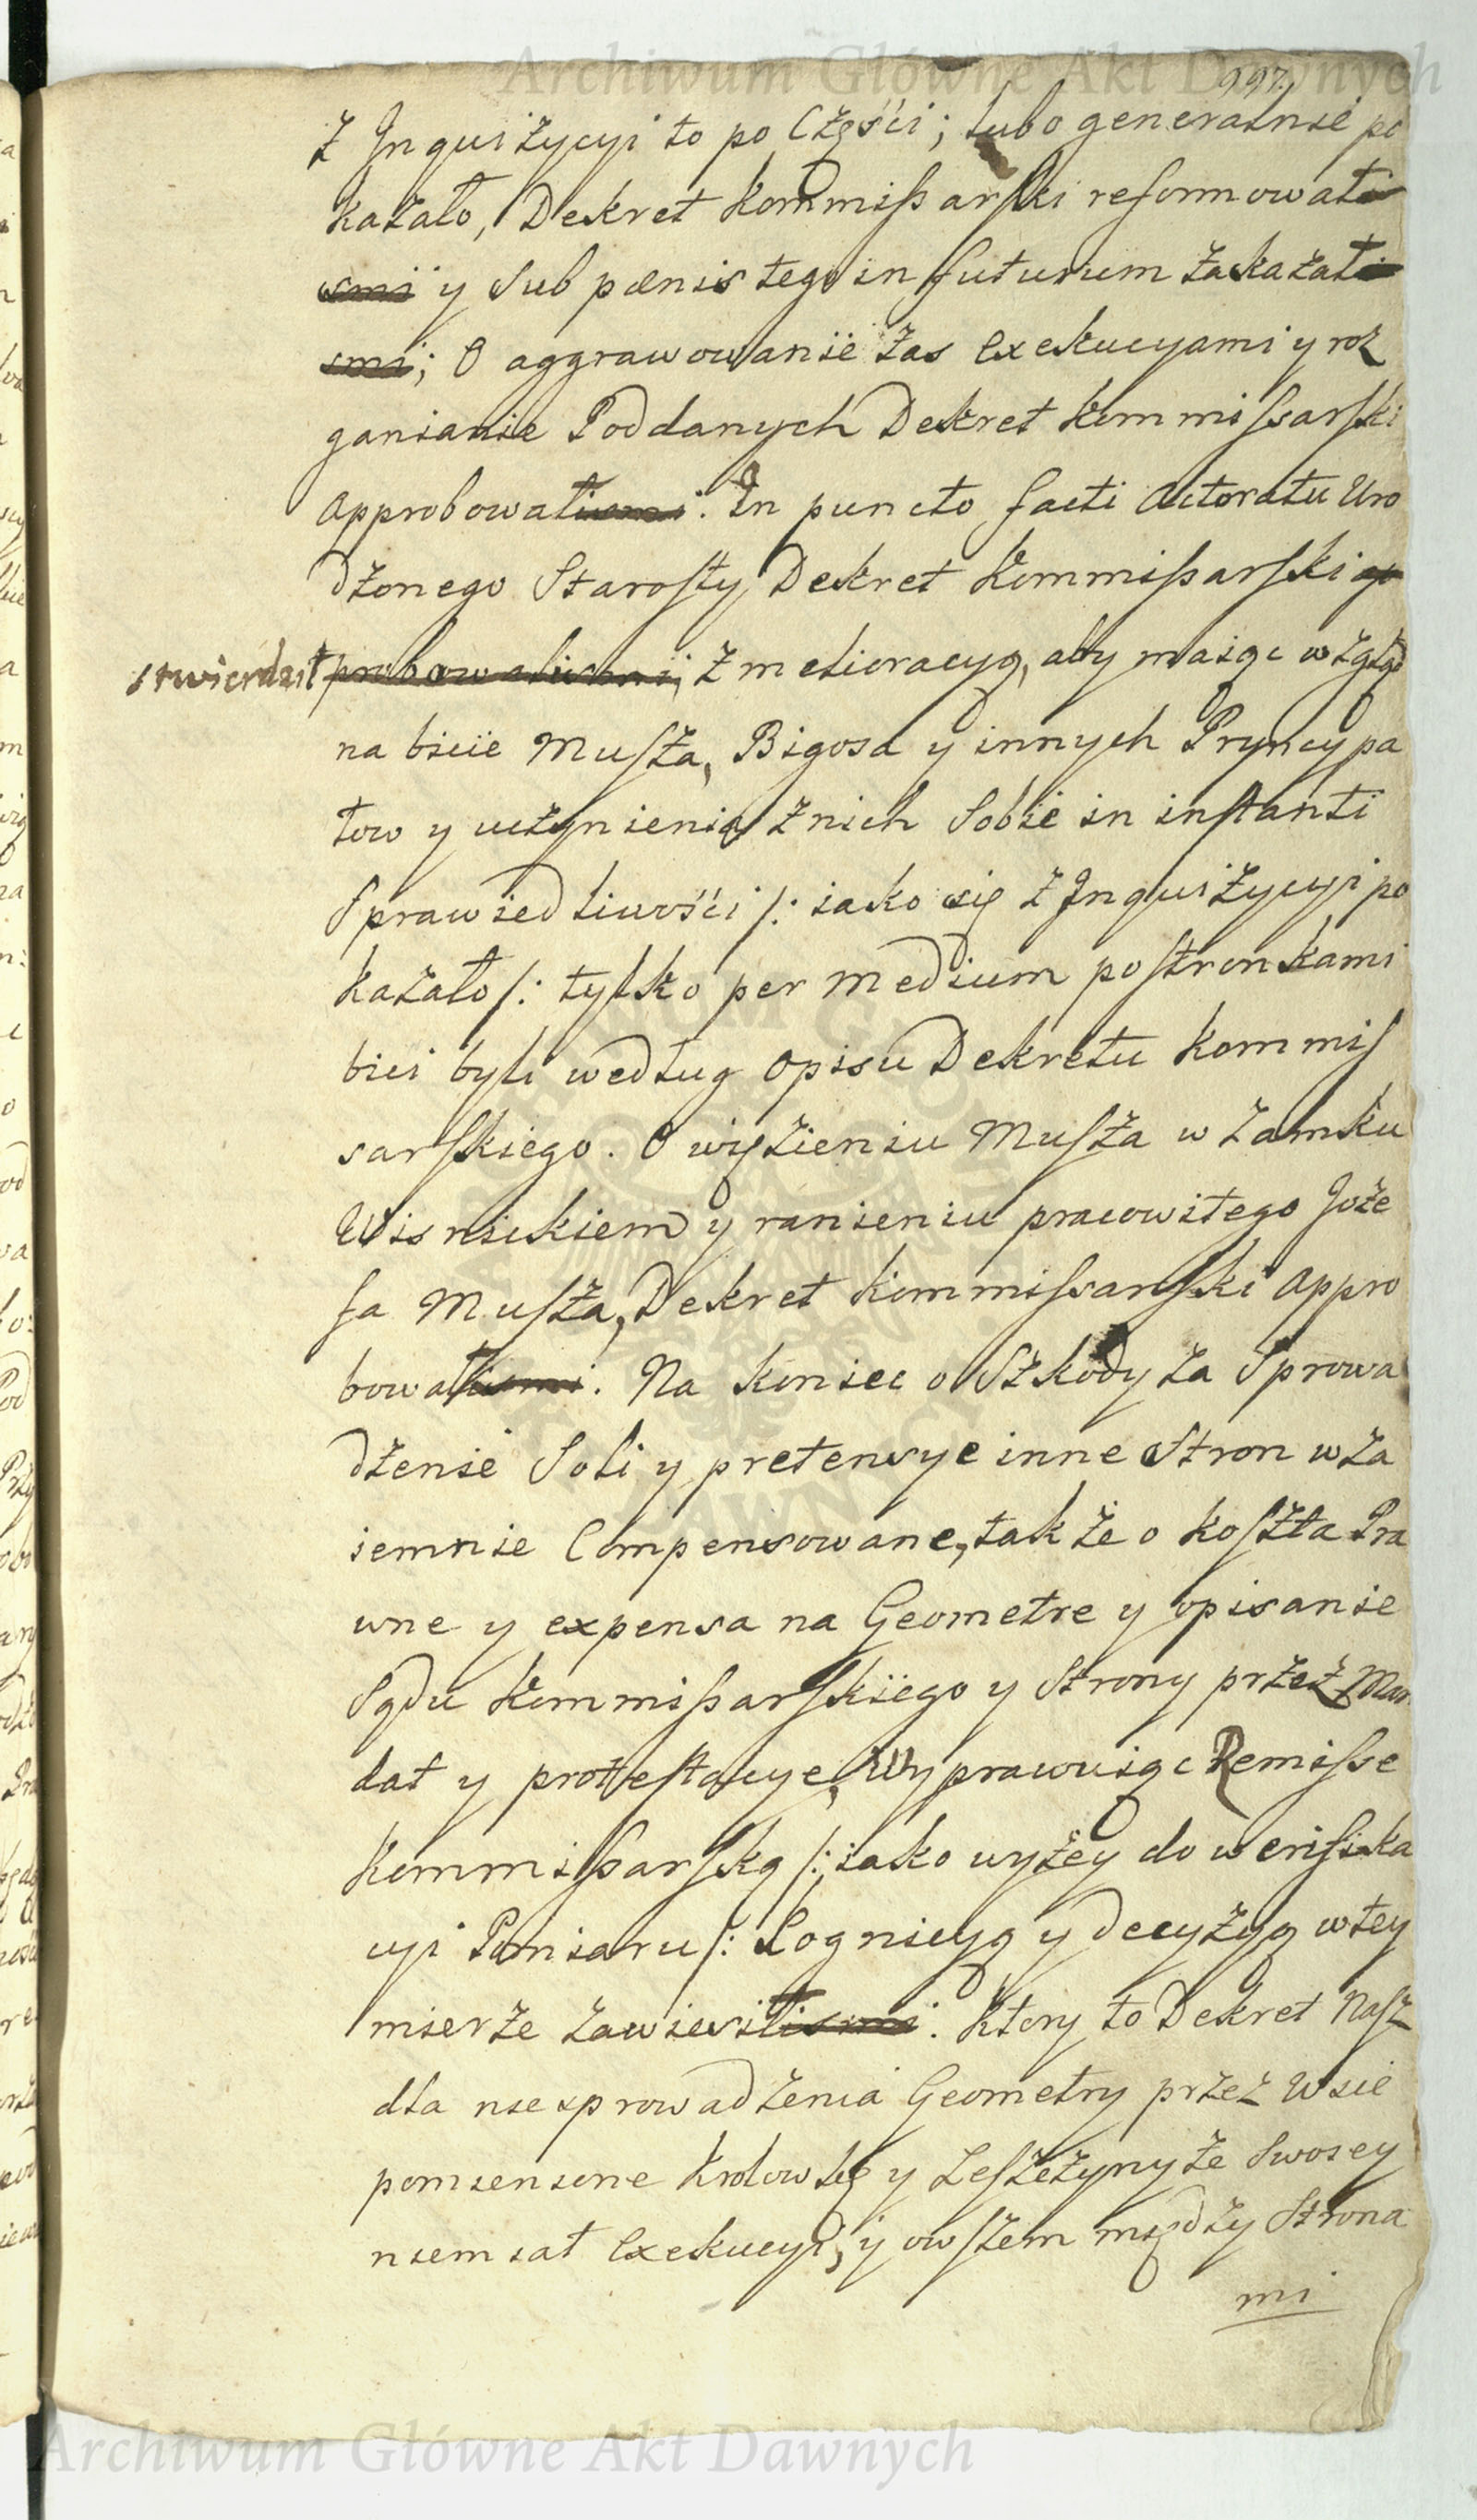 Archiwum Główne Akt Dawnych
997.
z Inquizycyi to po Części; lubo generalnie po
kazało, Dekret Kommissarski reformowali
smi y sub pœnis tego in futurum zakazali
smi; O aggrawowanie zas Exekucyami y roz
ganianie Poddanych Dekret Kommissarski
approbowalismi. In puncto facti Actoratu Uro
dzonego Starosty Dekret Kommissarski ap
stwierdził probowalismi, z melioracyą, aby maiąc wzgląd
na bicie Musza, Bigosa y innych Pryncypa
łow y uczynienia z nich Sobie in instanti
Sprawiedliwości /: iako się z Inquizycyi po
kazało /: tylko per medium postronkami
bici byli według opisu Dekretu Kommis
sarskiego. O więzieniu Musza w Zamku
Wisnickiem y ranieniu pracowitego Joze
fa Musza, Dekret Kommissarski appro
bowalismi. Na koniec o Szkody za Sprowa
dzenie Soli y pretensye inne Stron wza
iemnie Compensowane, także o koszta Pra
wne y expensa na Geometre y opisanie
Sądu Kommissarskiego y Strony przez Man
dat y protestacye, Wyprawuiąc Remisse
Kommissarską /: iako wyżey do werifika
cyi Paniaru /: Cognicyą y decyzyą w tey
mierze zawiesilismi. Ktory to Dekret Nasz
dla niesprowadzenia Geometry przez Wsie
pomienione Krolowkę y Leszczyny ze Swoiey
niemiał Exekucyi, y owszem między Strona
mi
Archiwum Główne Akt Dawnych